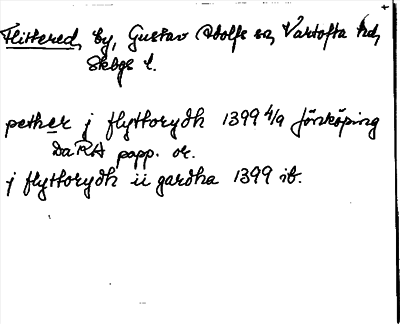 Flittered, by, Gustav Adolfs sn, Vartofta hd,
Skbgs l.
pether j flyttorydh 1399 4/9 Jönköping
DaRA papp. or.
j flyttorydh ii gardha 1399 ib.